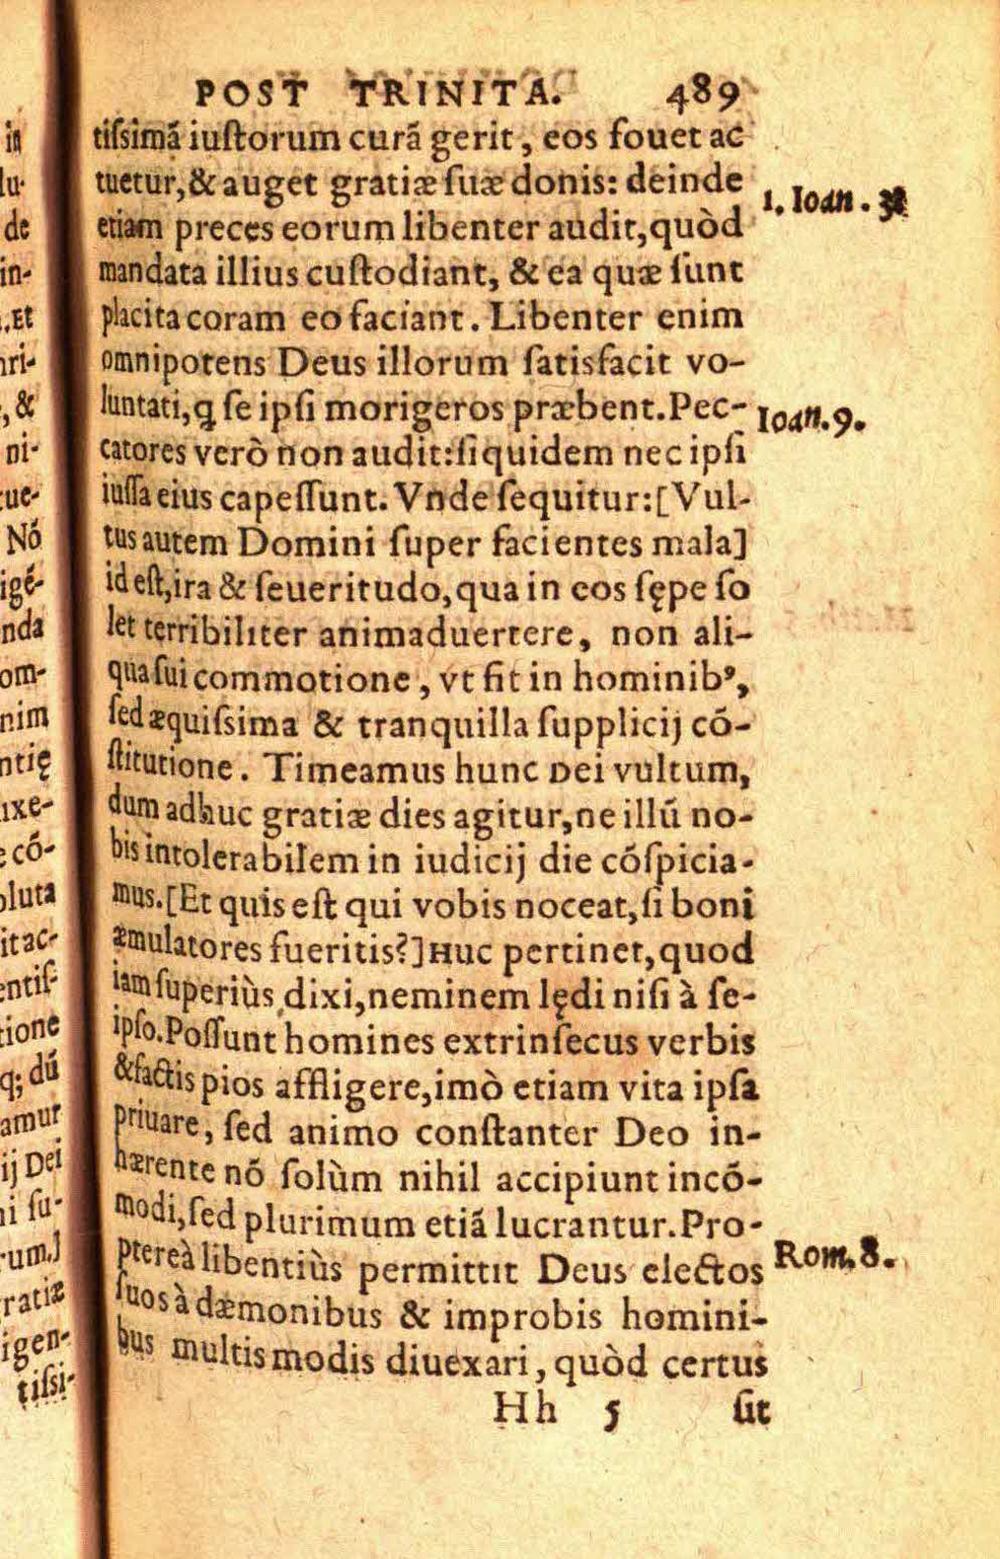 POST TRINITA. 489
tiſsimā iuſtorum curā gerit, eos fouet ac
tuetur, & auget gratiæ ſuæ donis: deinde
1. Ioan. 3
etiam preces eorum libenter audit, quòd
mandata illius cuſtodiant, & ea quæ ſunt
placita coram eo faciant. Libenter enim
omnipotens Deus illorum ſatisfacit vo-
luntati, ꝗ ſe ipſi morigeros præbent. Pec-
Ioan. 9.
catores verò non audit: ſiquidem nec ipſi
iuſſa eius capeſſunt. Vnde ſequitur: [Vul-
tus autem Domini ſuper facientes mala]
id eſt, ira & ſeueritudo, qua in eos ſępe ſo
let terribiliter animaduertere, non ali-
qua ſui commotione, vt fit in hominibꝰ,
ſed æquiſsima & tranquilla ſupplicij cō-
ſtitutione. Timeamus hunc Dei vultum,
dum adhuc gratiæ dies agitur, ne illū no-
bis intolerabilem in iudicij die cōſpicia-
mus. [Et quis eſt qui vobis noceat, ſi boni
æmulatores fueritis?] Huc pertinet, quod
iam ſuperiùs dixi, neminem lędi niſi à ſe-
ipſo. Poſſunt homines extrinſecus verbis
& factis pios affligere, imò etiam vita ipſa
priuare, ſed animo conſtanter Deo in-
hærente nō ſolùm nihil accipiunt incō-
modi, ſed plurimum etiā lucrantur. Pro-
ptereà libentiùs permittit Deus electos
Rom. 8.
ſuos à dæmonibus & improbis homini-
bus multis modis diuexari, quòd certus
Hh 5 ſit
in
lu-
de
in-
. Et
ri-
, &
ni-
ue-
Nō
igē-
nda
om-
nim
ntię
ixe-
cō-
luta
it ac-
entiſ-
tione
q; dū
amur
ij Dei
ii ſu-
rum.]
ratiæ
igen-
tiſsi-